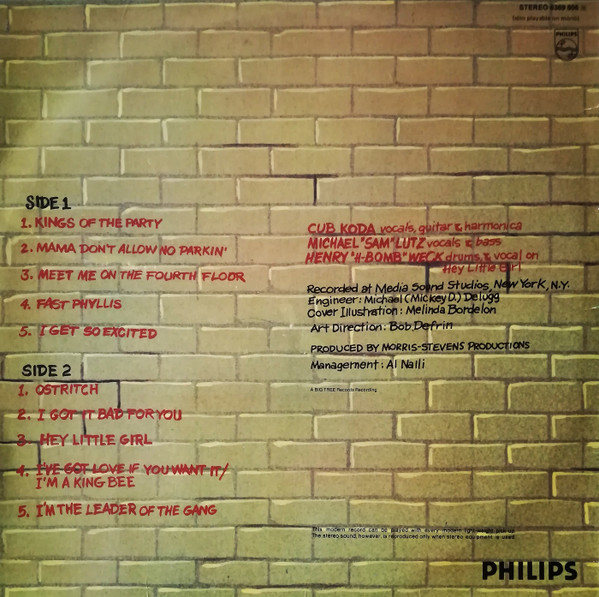 STEREO 6369 806
PHILIPS
SIDE 1
1. KINGS OF THE PARTY
2. MAMA DON'T ALLOW NO PARKIN'
3. MEET ME ON THE FOURTH FLOOR
4. FAST PHYLLIS
5. I GET SO EXCITED
SIDE 2
1. OSTRITCH
2. I GOT IT BAD FOR YOU
3. HEY LITTLE GIRL
4. I'VE GOT LOVE IF YOU WANT IT/
I'M A KING BEE
5. I'M THE LEADER OF THE GANG
CUB KODA vocals, guitar & harmonica
MICHAEL "SAM" LUTZ vocals & bass
HENRY "H-BOMB" WECK drums & vocal on
Hey Little Girl
Recorded at Media Sound Studios, New York, N.Y.
Engineer: Michael (Mickey D.) Delugg
Cover Illustration: Melinda Bordelon
Art Direction: Bob Defrin
PRODUCED BY MORRIS-STEVENS PRODUCTIONS
Management: Al Nalli
A BIG TREE Records Recording
This modern record can be played with every modern light-weight pick-up.
The stereo sound, however, is reproduced only when stereo equipment is used.
PHILIPS